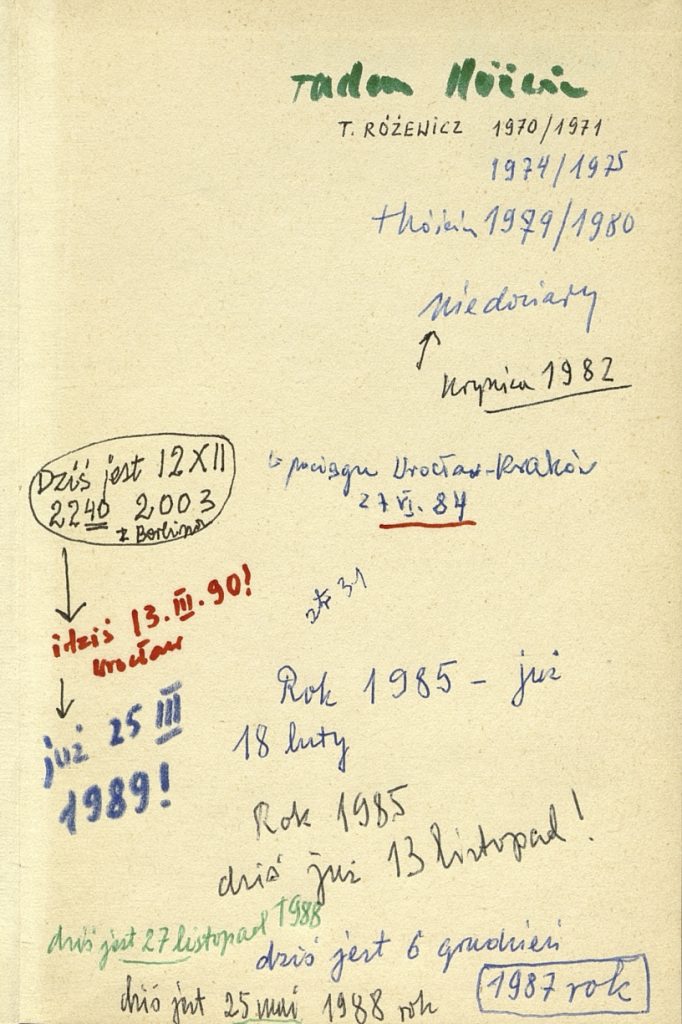 T. RÓŻEWICZ 1970/1971
1974/1975
1979/1980
Krynica 1982
Dziś jest 12 XII
22 40 2003
z Berlina
w pociągu Wrocław-Kraków
27 VI. 84
i dziś 13. III. 90!
Wrocław
str 31
już 25 III
1989!
Rok 1985 - już
18 luty
Rok 1985
dziś już 13 listopad!
dziś jest 27 listopad 1988
dziś jest 6 grudzień
1987 rok
dziś jest 25 maj 1988 rok